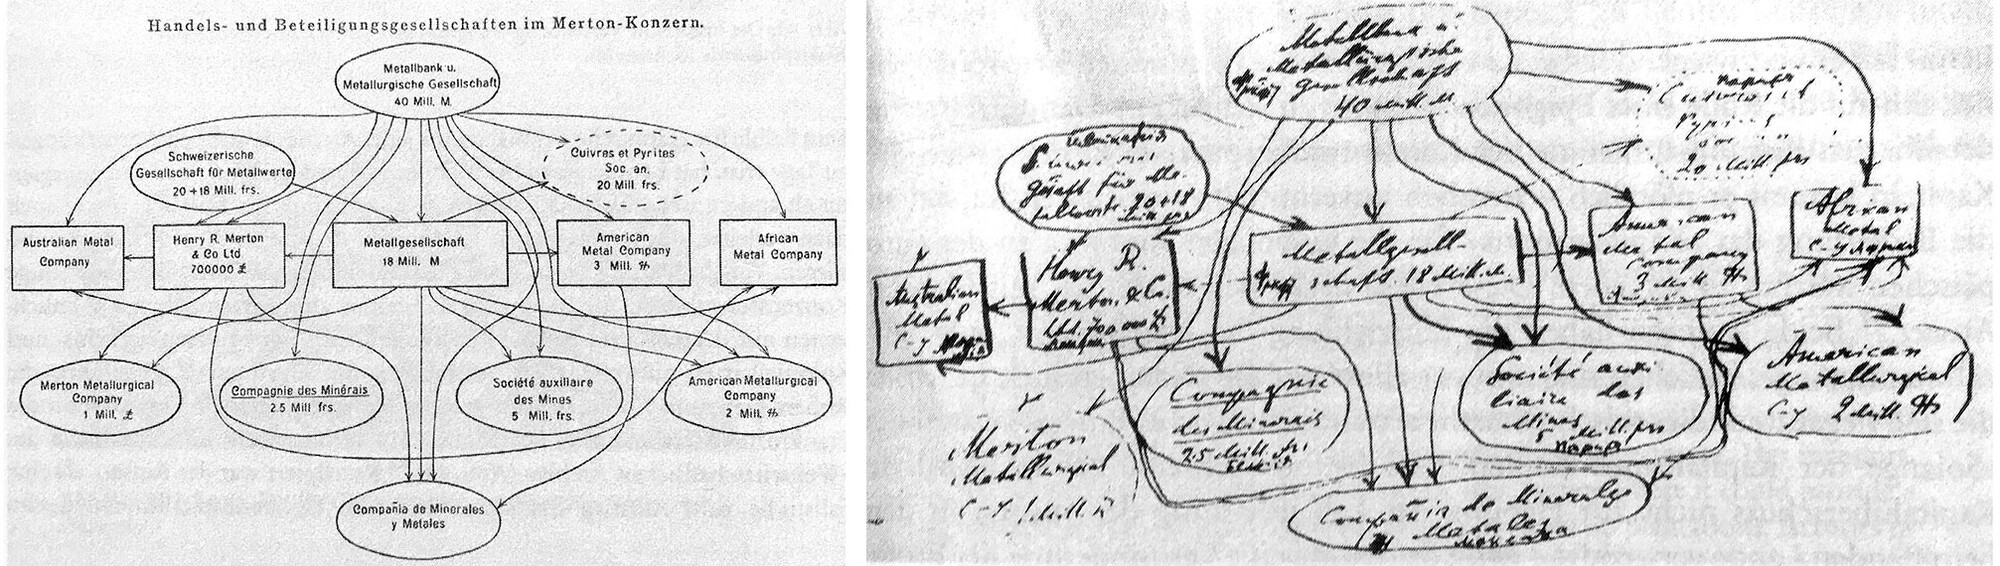 Handels- und Beteiligungsgesellschaften im Merton-Konzern.
Metallbank u.
Metallurgische Gesellschaft
40 Mill. M.
Schweizerische
Gesellschaft für Metallwerte
20 + 18 Mill. frs.
Cuivres et Pyrites
Soc. an.
20 Mill. frs.
Australian Metal
Company
Henry R. Merton
& Co Ltd
700000 £
Metallgesellschaft
18 Mill. M
American
Metal Company
3 Mill. $
African
Metal Company
Merton Metallurgical
Company
1 Mill. £
Compagnie des Minérais
2.5 Mill frs.
Société auxiliaire
des Mines
5 Mill. frs.
American Metallurgical
Company
2 Mill. $
Compañia de Minerales
y Metales
Metallbank u
Metallurgische
Gesellschaft
40 Mill. M
20 Mill frs
tallwerte 20+18
Henry R.
Merton & Co.
Ltd. 700000 £
Metallgesell-
schaft. 18 Mill. M.
American
Metal
Company
3 Mill. $
African
Metal
C-y
Australian
Metal
C-y
Merton
Metallurgical
C-y 1 Mill. £
Compagnie
des Minerais
2.5 Mill. frs
Société auxi
liaire des
Mines
5 Mill. frs
American
Metallurgical
C-y 2 Mill. $
Compañia de Minerales
Metales